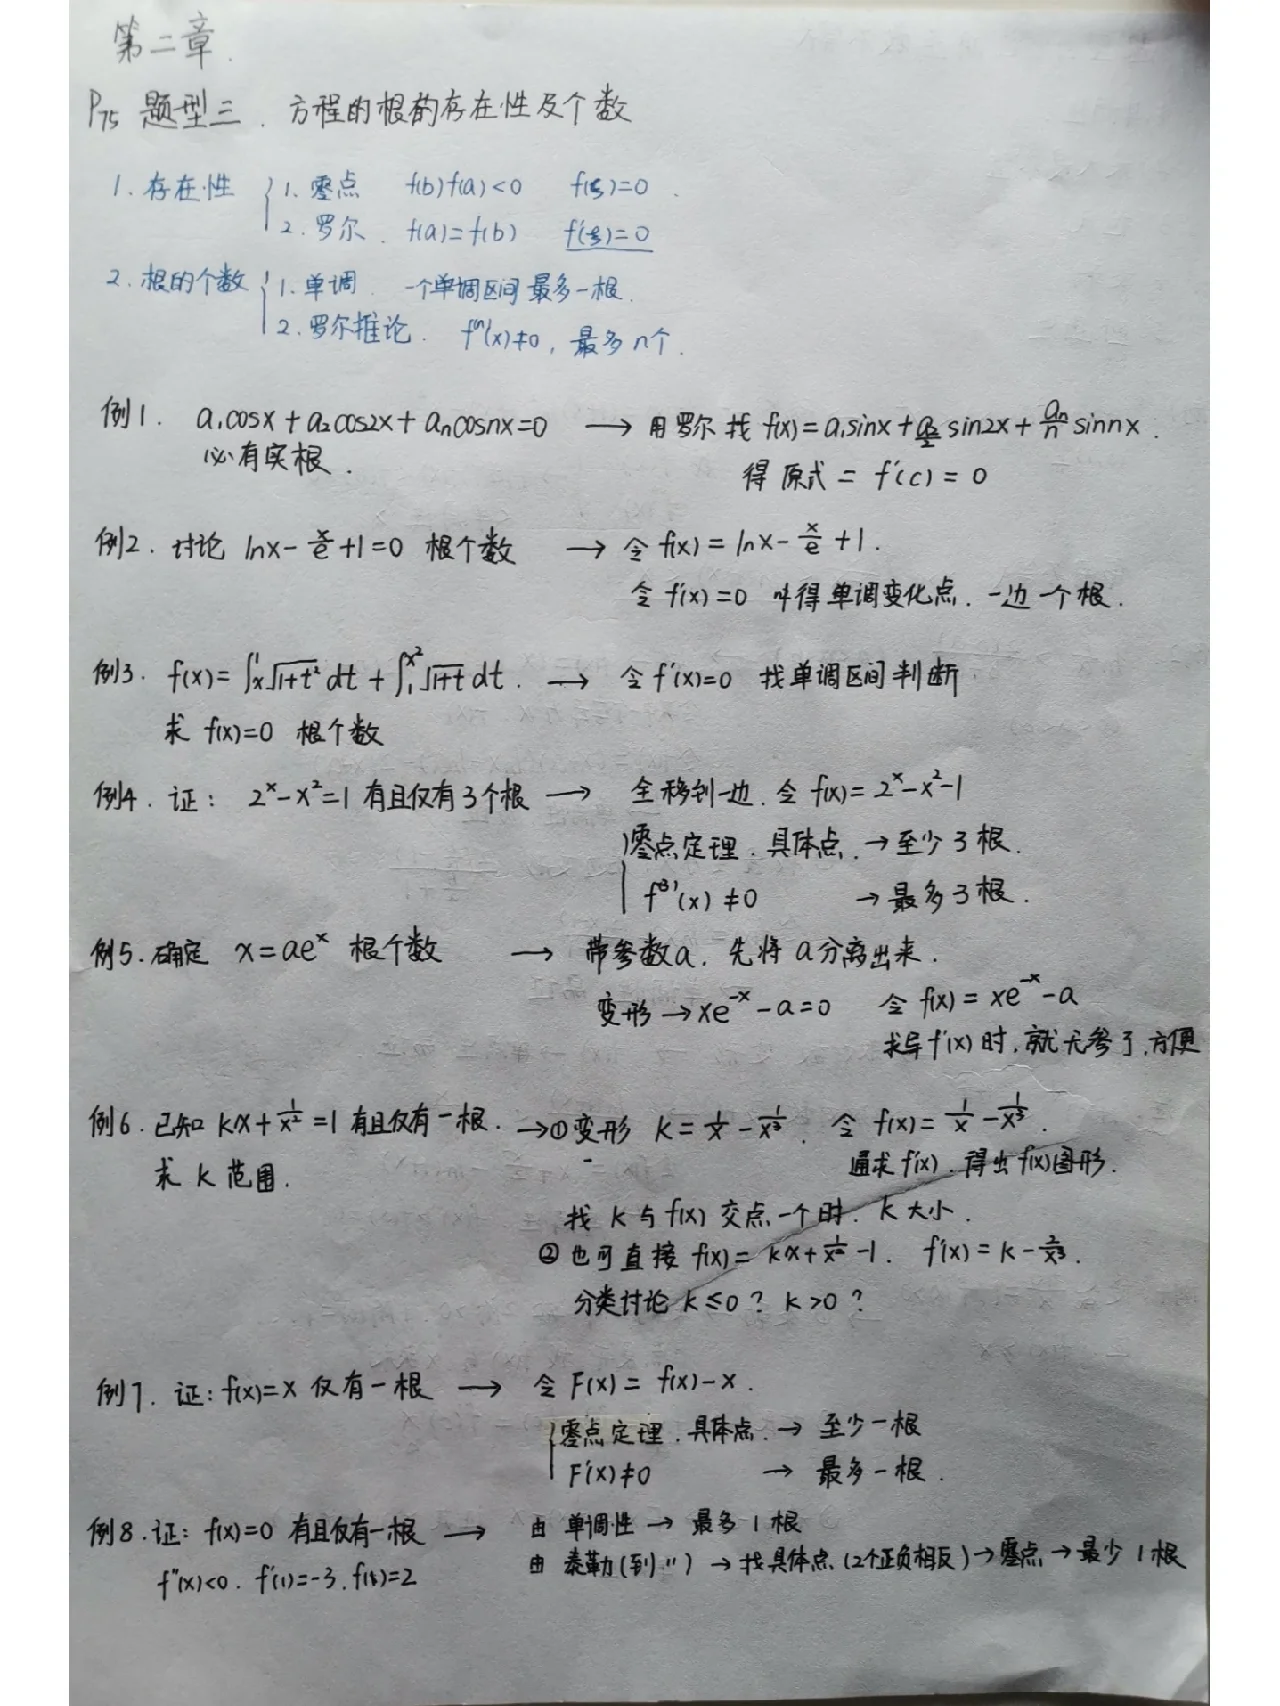 第二章.
P75 题型三. 方程的根的存在性及个数
1. 存在性 { 1. 零点 f(b)f(a)<0 f(ξ)=0.
2. 罗尔. f(a)=f(b) f'(ξ)=0
2. 根的个数 { 1. 单调. 一个单调区间最多一根.
2. 罗尔推论. f⁽ⁿ⁾(x)≠0, 最多n个.
例1. a₁cosx+a₂cos2x+aₙcosnx=0 → 用罗尔找 f(x)=a₁sinx+a₂/2 sin2x+aₙ/n sinnx.
必有实根. 得原式 = f'(c) = 0
例2. 讨论 lnx-x/e+1=0 根个数 → 令 f(x)=lnx-x/e+1.
令 f'(x)=0 叫得单调变化点. 一边一个根.
例3. f(x)=∫ₓ¹√1+t² dt+∫₁^x²√1+t dt. → 令 f'(x)=0 找单调区间判断
求 f(x)=0 根个数
例4. 证: 2ˣ-x²=1 有且仅有3个根 → 全移到一边. 令 f(x)=2ˣ-x²-1
{ 零点定理. 具体点. → 至少3根.
f⁽³⁾(x)≠0 → 最多3根.
例5. 确定 x=aeˣ 根个数 → 带参数a. 先将a分离出来.
变形 → xe⁻ˣ-a=0 令 f(x)=xe⁻ˣ-a
求导f'(x)时, 就无参了, 方便
例6. 已知 kx+1/x²=1 有且仅有一根. → ①变形 k=1/x-1/x³. 令 f(x)=1/x-1/x³.
求 k 范围. 通求f'(x). 得出f(x)图形.
找 k 与 f(x) 交点一个时. k 大小.
②也可直接 f(x)=kx+1/x²-1. f'(x)=k-2/x³.
分类讨论 k≤0? k>0?
例7. 证: f(x)=x 仅有一根 → 令 F(x)=f(x)-x.
{ 零点定理. 具体点. → 至少一根
F'(x)≠0 → 最多一根.
例8. 证: f(x)=0 有且仅有一根 → 由 单调性 → 最多1根
f''(x)<0. f'(1)=-3. f(1)=2 由 泰勒(到'') → 找具体点(2个正负相反) → 零点 → 最少1根